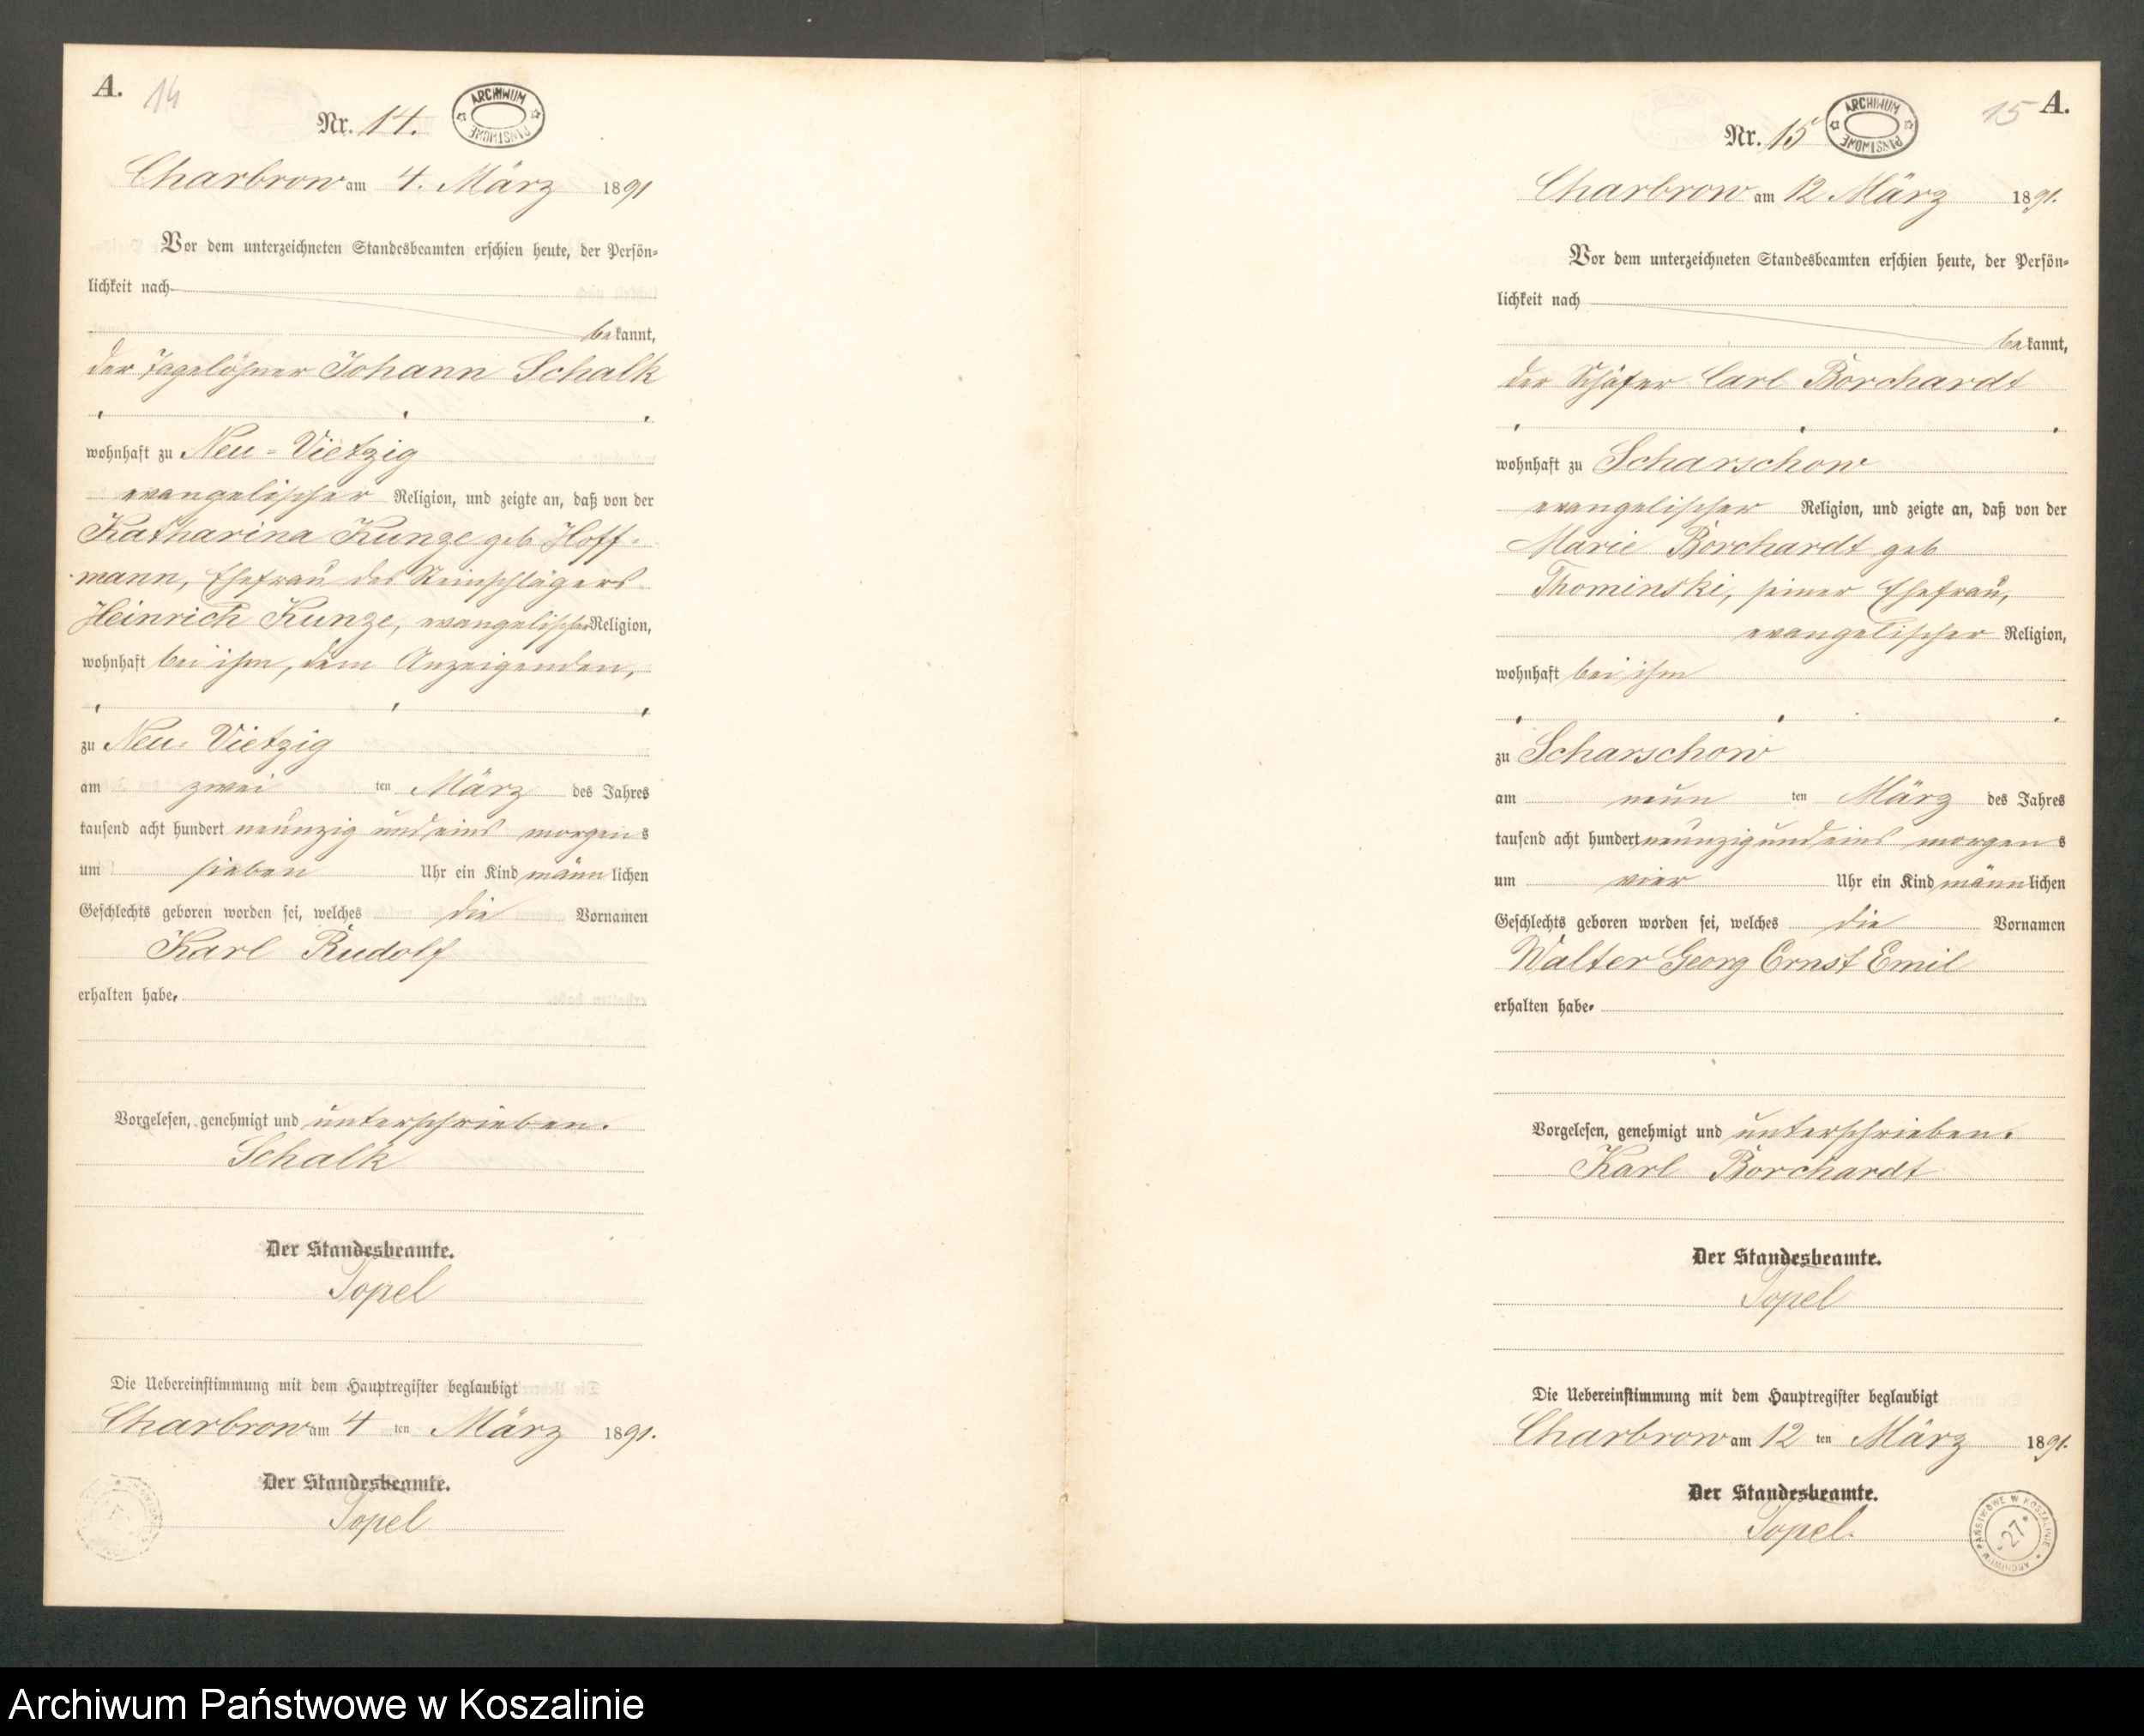 A. 14
Nr. 14.
ARCHIWUM PAŃSTWOWE
Charbrow am 4. März 1891
Vor dem unterzeichneten Standesbeamten erschien heute, der Persön-
lichkeit nach
bekannt,
der Tagelöhner Johann Schalk
wohnhaft zu Neu-Vietzig
evangelischer Religion, und zeigte an, daß von der
Katharina Kunze geb Hoff-
mann, Ehefrau des Steinschlägers
Heinrich Kunze, evangelischer Religion,
wohnhaft bei ihm, dem Anzeigenden,
zu Neu-Vietzig
am zwei ten März des Jahres
tausend acht hundert neunzig und eins morgens
um sieben Uhr ein Kind männlichen
Geschlechts geboren worden sei, welches die Vornamen
Karl Rudolf
erhalten habe.
Vorgelesen, genehmigt und unterschrieben.
Schalk
Der Standesbeamte.
Topel
Die Uebereinstimmung mit dem Hauptregister beglaubigt
Charbrow am 4 ten März 1891.
Der Standesbeamte.
Topel
15 A.
Nr. 15
ARCHIWUM PAŃSTWOWE
Charbrow am 12 März 1891.
Vor dem unterzeichneten Standesbeamten erschien heute, der Persön-
lichkeit nach
bekannt,
der Schäfer Carl Borchardt
wohnhaft zu Scharschow
evangelischer Religion, und zeigte an, daß von der
Marie Borchardt geb
Thominski, seiner Ehefrau,
evangelischer Religion,
wohnhaft bei ihm
zu Scharschow
am neun ten März des Jahres
tausend acht hundert neunzig und eins morgens
um vier Uhr ein Kind männlichen
Geschlechts geboren worden sei, welches die Vornamen
Walter Georg Ernst Emil
erhalten habe.
Vorgelesen, genehmigt und unterschrieben.
Karl Borchardt
Der Standesbeamte.
Topel
Die Uebereinstimmung mit dem Hauptregister beglaubigt
Charbrow am 12 ten März 1891.
Der Standesbeamte.
Topel.
ARCHIWUM PAŃSTWOWE W KOSZALINIE *27*
Archiwum Państwowe w Koszalinie